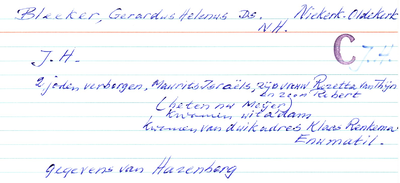 Bleeker, Gerardus Helenus Ds. Niekerk-Oldekerk
N.H.
C J.H.
J.H.
2 joden verborgen, Maurits Israëls, zijn vrouw Rozetta van Thijn
en zoon Robert
(heten nu Meijer)
Kwamen uit a'dam
Kwamen van duikadres Klaas Renkema
Enumatil.
gegevens van Hazenberg